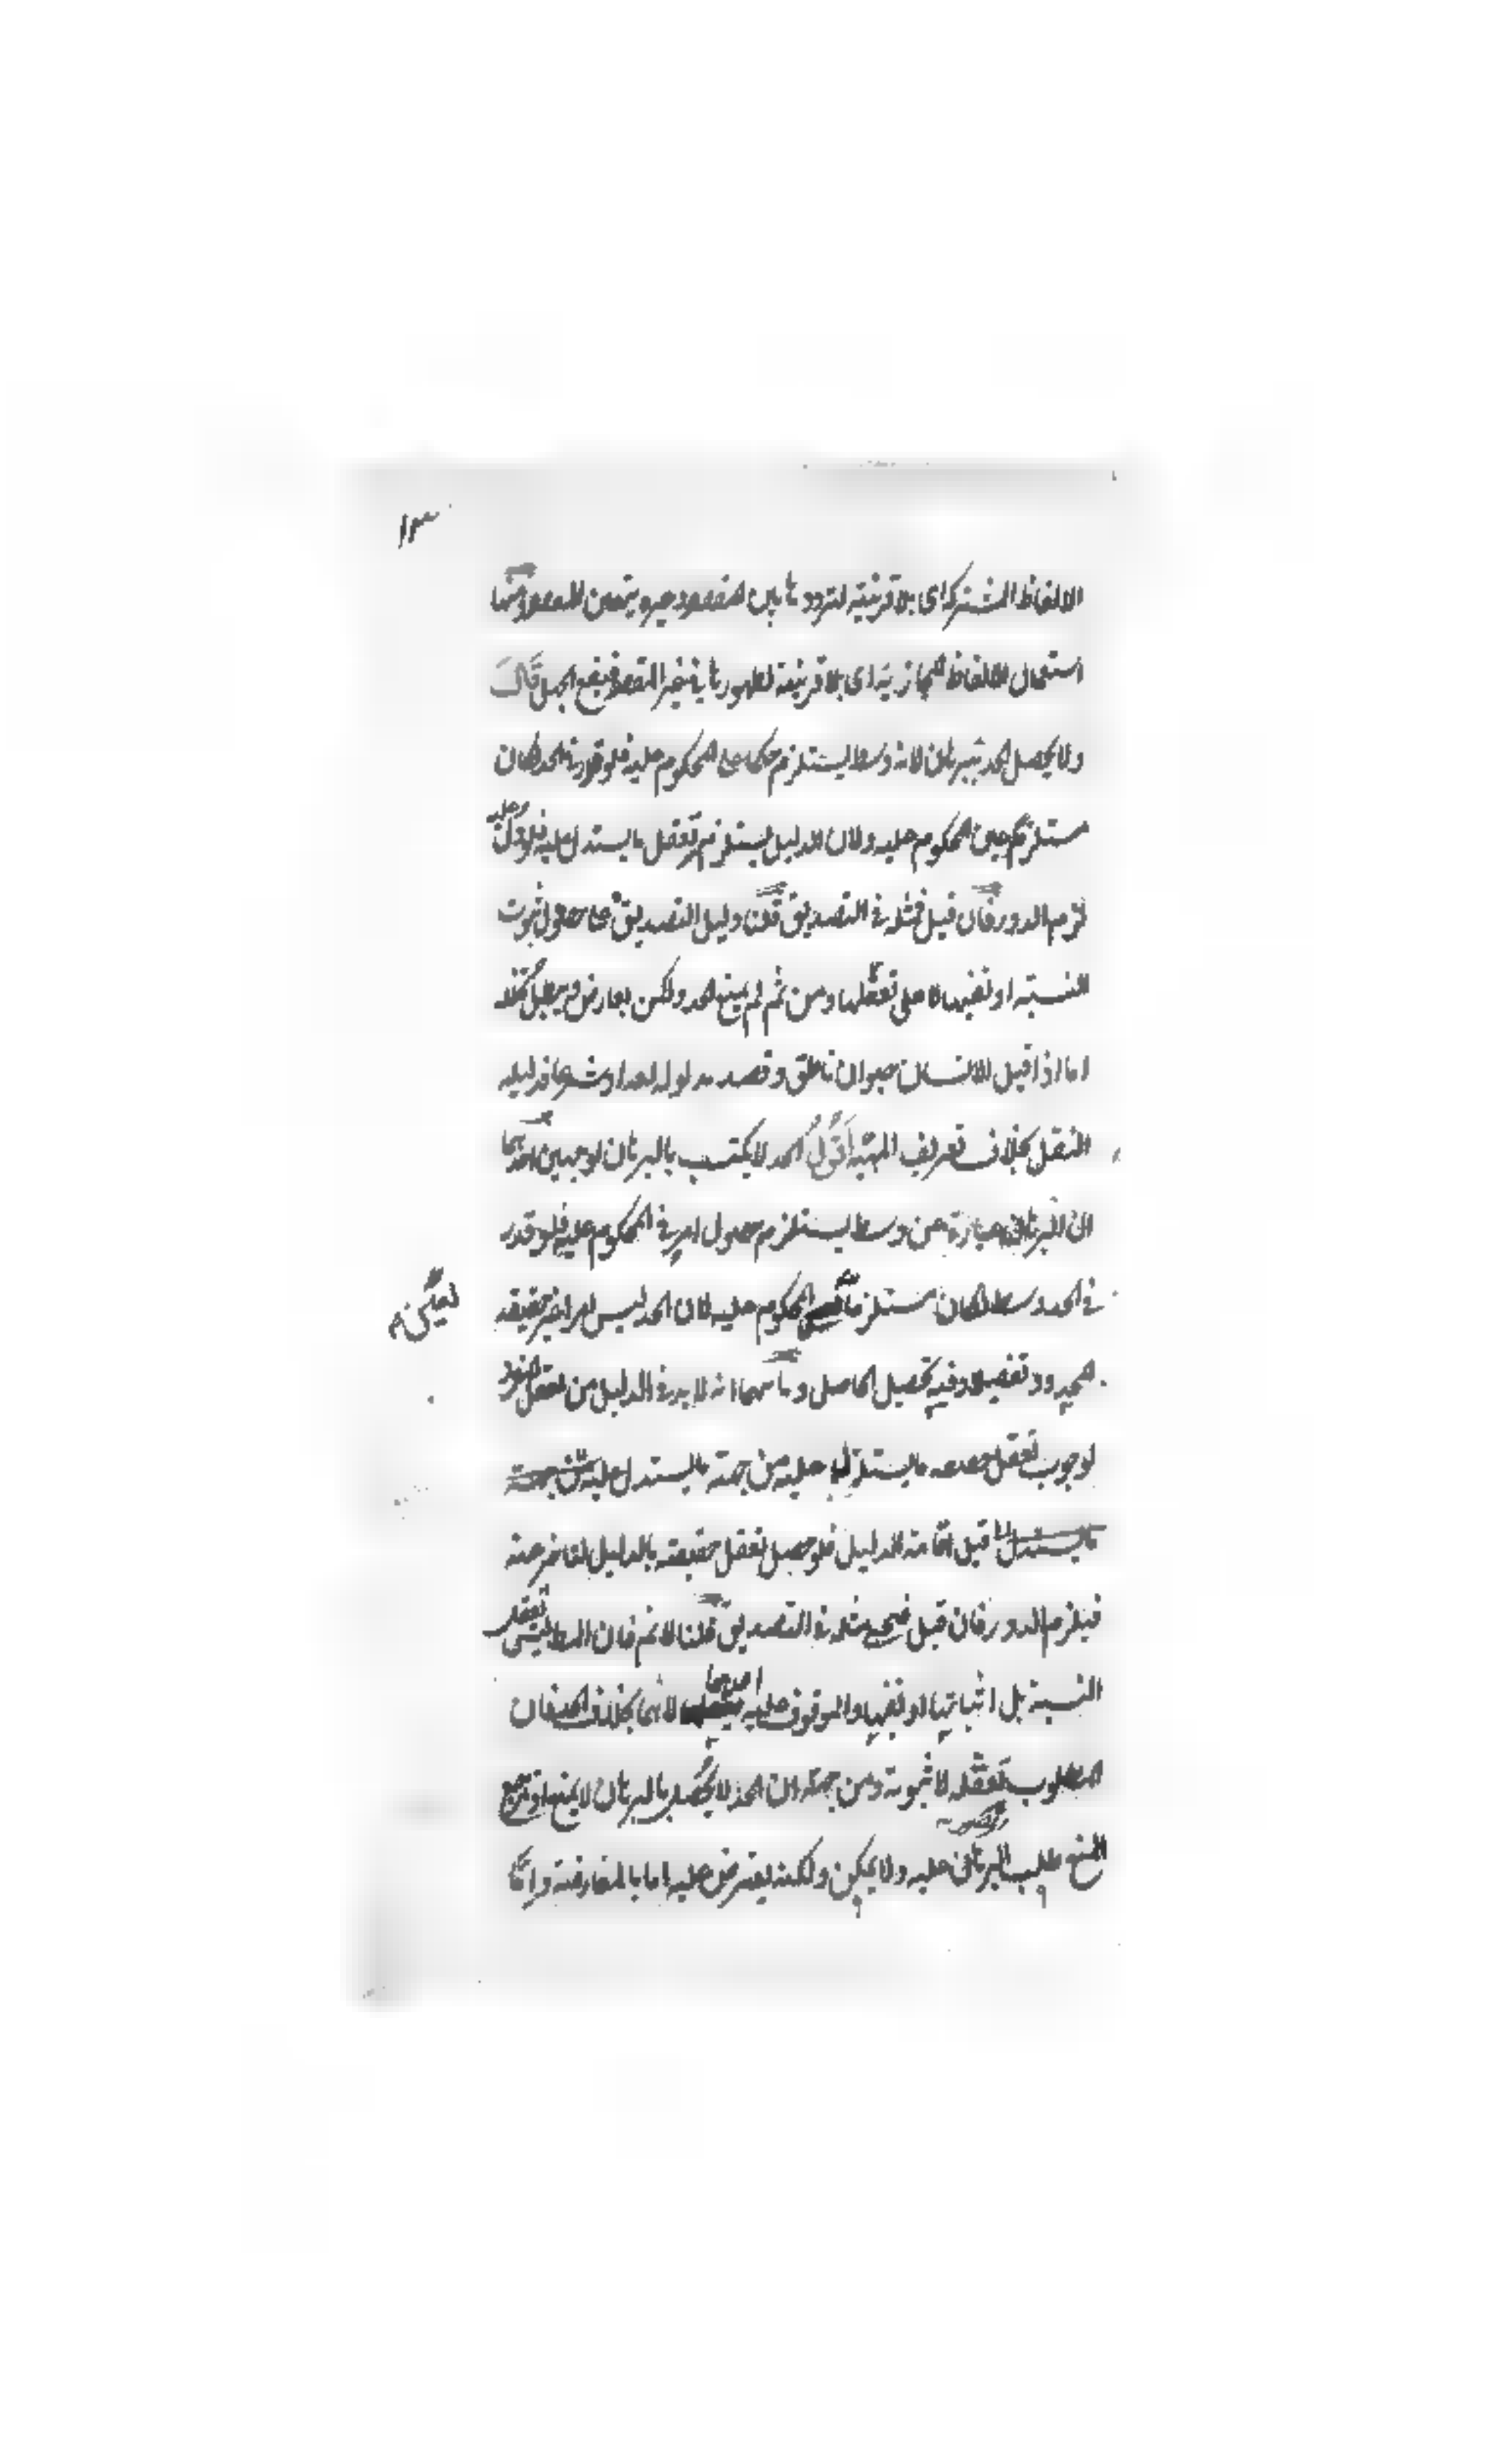 ١٣
الالفاظ المشتركة اى بلا قرينة لترددها بين المقصود وغيره يتعين المقصود ومنها
استعمال الالفاظ المجازية اى بلا قرينة لظهورها فى غير المقصود فيقع الجهل قال
ولا يحصل الحد ببرهان لانه وسط يستلزم حكما على المحكوم عليه فلو قدر فى الحد لكان
مستلزما عين المحكوم عليه ولان الدليل يستلزم تعقل ما يستدل عليه فلو دل عليه
لزم الدور فان قيل فمثله فى التصديق قلنا دليل التصديق على حصول ثبوت
النسبة او نفيها لا على تعقلها ومن ثم لم يمنع الحد ولكن يعارض ويبطل بخلله
اما اذا قيل الانسان حيوان ناطق وقصد مدلوله لغة او شرعا فدليله
النقل بخلاف تعريف الماهية اقول الحد لا يكتسب بالبرهان لوجهين احدهما
ان البرهان عبارة عن وسط يستلزم حصول امر فى المحكوم عليه فلو قدر
فى الحد وسط لكان مستلزما المحكوم عليه لان الحد ليس امرا غير حقيقة
لعين
المحدود تفصيلا وفيه تحصيل الحاصل وثانيهما انه لا بد فى الدليل من تعقل
لوجوب تعقل ما يستدل عليه من جهة ما يستدل عليه
قبل اقامة الدليل فلو حصل تعقل حقيقته بالدليل لتاخر عنه
فيلزم الدور فان قيل فيجئ مثله فى التصديق قلنا لا نم فان المط ليس تعقل
النسبة بل اثباتها او نفيها والموقوف عليه احدهما لا هى بخلاف الحد فان
المطلوب تعقله لا ثبوته ومن جهة ان الحد لا يحصل بالبرهان لا يمنع اذ مرجع
المنع طلب البرهان عليه ولا يمكن ولكنه يعترض عليه اما بالمعارضة واما